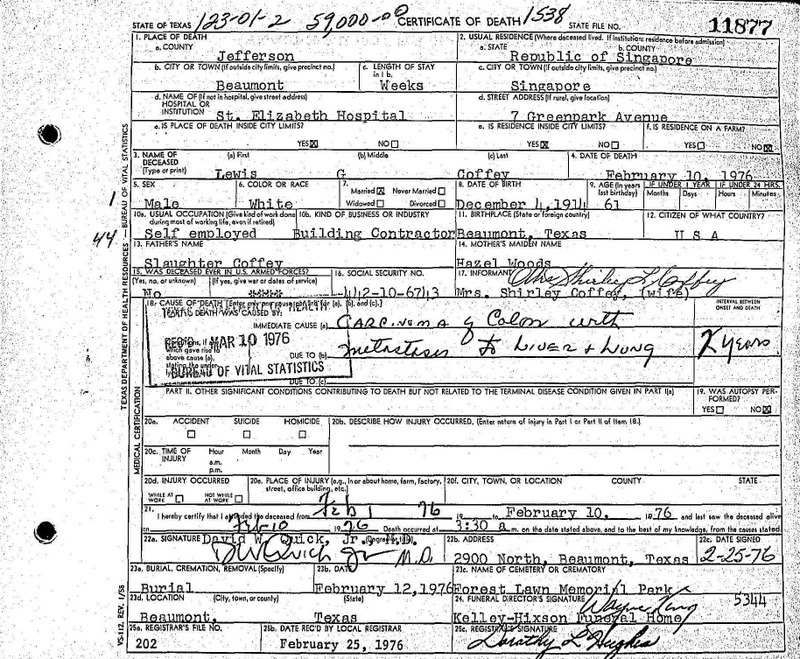 STATE OF TEXAS 123-01-2 59,000-00 CERTIFICATE OF DEATH 1538 STATE FILE NO. 11877
1. PLACE OF DEATH 2. USUAL RESIDENCE (Where deceased lived. If institution: residence before admission)
a. COUNTY Jefferson a. STATE Republic of Singapore b. COUNTY
b. CITY OR TOWN (If outside city limits, give precinct no.) Beaumont c. LENGTH OF STAY in 1 b. Weeks c. CITY OR TOWN (If outside city limits, give precinct no.) Singapore
d. NAME OF (If not in hospital, give street address) HOSPITAL OR INSTITUTION St. Elizabeth Hospital d. STREET ADDRESS (If rural, give location) 7 Greenpark Avenue
e. IS PLACE OF DEATH INSIDE CITY LIMITS? YES X NO e. IS RESIDENCE INSIDE CITY LIMITS? YES X NO f. IS RESIDENCE ON A FARM? YES NO X
3. NAME OF DECEASED (Type or print) (a) First (b) Middle (c) Last 4. DATE OF DEATH
Lewis G Coffey February 10, 1976
5. SEX 6. COLOR OR RACE 7. Married X Never Married Widowed Divorced 8. DATE OF BIRTH 9. AGE (In years last birthday) IF UNDER 1 YEAR Months Days IF UNDER 24 HRS. Hours Minutes
Male White December 4, 1914 61
10a. USUAL OCCUPATION (Give kind of work done during most of working life, even if retired) 10b. KIND OF BUSINESS OR INDUSTRY 11. BIRTHPLACE (State or foreign country) 12. CITIZEN OF WHAT COUNTRY?
Self employed Building Contractor Beaumont, Texas U S A
13. FATHER'S NAME 14. MOTHER'S MAIDEN NAME
Slaughter Coffey Hazel Woods
15. WAS DECEASED EVER IN U.S. ARMED FORCES? (Yes, no, or unknown) (If yes, give war or dates of service) 16. SOCIAL SECURITY NO. 17. INFORMANT Mrs Shirley L. Coffey
No 442-10-6743 Mrs. Shirley Coffey, (wife)
18. CAUSE OF DEATH [Enter only one cause per line for (a), (b), and (c).] INTERVAL BETWEEN ONSET AND DEATH
IMMEDIATE CAUSE (a) Carcinoma of Colon with
REC'D MAR 10 1976 DUE TO (b) metastases to Liver & Lung 2 years
BUREAU OF VITAL STATISTICS DUE TO (c)
PART II. OTHER SIGNIFICANT CONDITIONS CONTRIBUTING TO DEATH BUT NOT RELATED TO THE TERMINAL DISEASE CONDITION GIVEN IN PART I(a) 19. WAS AUTOPSY PERFORMED? YES NO X
20a. ACCIDENT SUICIDE HOMICIDE 20b. DESCRIBE HOW INJURY OCCURRED. (Enter nature of injury in Part I or Part II of Item 18.)
20c. TIME OF INJURY Hour a.m. p.m. Month Day Year
20d. INJURY OCCURRED WHILE AT WORK NOT WHILE AT WORK 20e. PLACE OF INJURY (e.g., in or about home, farm, factory, street, office building, etc.) 20f. CITY, TOWN, OR LOCATION COUNTY STATE
21. I hereby certify that I attended the deceased from Feb 1 1976 to February 10, 1976 and last saw the deceased alive
on Feb 10 1976 Death occurred at 3:30 a m. on the date stated above, and to the best of my knowledge, from the causes stated
22a. SIGNATURE David W. Quick, Jr. M.D. 22b. ADDRESS 22c. DATE SIGNED
DW Quick Jr M.D. 2900 North, Beaumont, Texas 2-25-76
23a. BURIAL, CREMATION, REMOVAL (Specify) 23b. DATE 23c. NAME OF CEMETERY OR CREMATORY
Burial February 12, 1976 Forest Lawn Memorial Park
23d. LOCATION (City, town, or county) (State) 24. FUNERAL DIRECTOR'S SIGNATURE Wayne King 5344
Beaumont, Texas Kelley-Hixson Funeral Home
25a. REGISTRAR'S FILE NO. 25b. DATE REC'D BY LOCAL REGISTRAR 25c. REGISTRAR'S SIGNATURE
202 February 25, 1976 Dorothy L Hughes
1
44
TEXAS DEPARTMENT OF HEALTH RESOURCES - BUREAU OF VITAL STATISTICS
MEDICAL CERTIFICATION
VS-112, REV. 1/58